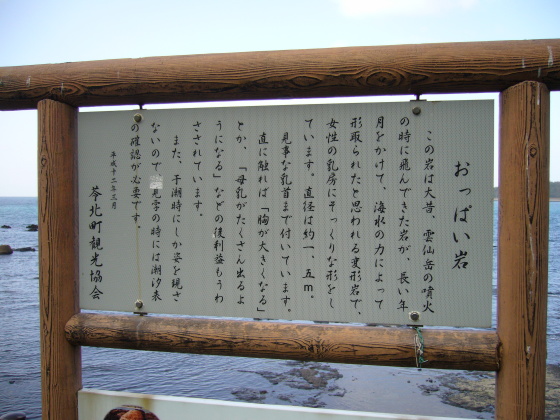 おっぱい岩
この岩は大昔、雲仙岳の噴火
の時に飛んできた岩が、長い年
月をかけて、海水の力によって
形取られたと思われる変形岩で、
女性の乳房にそっくりな形をし
ています。直径は約一、五m。
見事な乳首まで付いています。
直に触れば「胸が大きくなる」
とか、「母乳がたくさん出るよ
うになる」などの御利益もうわ
さされています。
また、干潮時にしか姿を現さ
ないので、見学の時には潮汐表
の確認が必要です。
平成十二年三月
苓北町観光協会